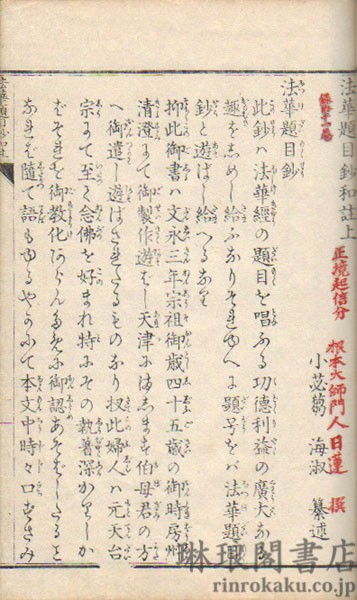 法華題目鈔和註上
正境起信分
根本大師門人日蓮 撰
小苾蒭 海淑 纂述
法華題目鈔
此鈔ハ法華經の題目を唱ふる功徳利益の廣大なる
趣をしめし給ふなりそれゆへに題号をバ法華題目
鈔と遊ばし給へるなり
抑此御書ハ文永三年宗祖御歳四十五歳の御時房州
清澄にて御製作遊ばし天津にまします伯母君の方
へ御遣し遊ばされたるものなり扨此婦人ハ元天台
宗にて至て念佛を好まれ特にその執着深かりしか
ばそれを御教化あらん為に御認あそばしたると
なれバ隨て語もゆるやかにて本文中時々口ずさみ
琳琅閣書店
rinrokaku.co.jp